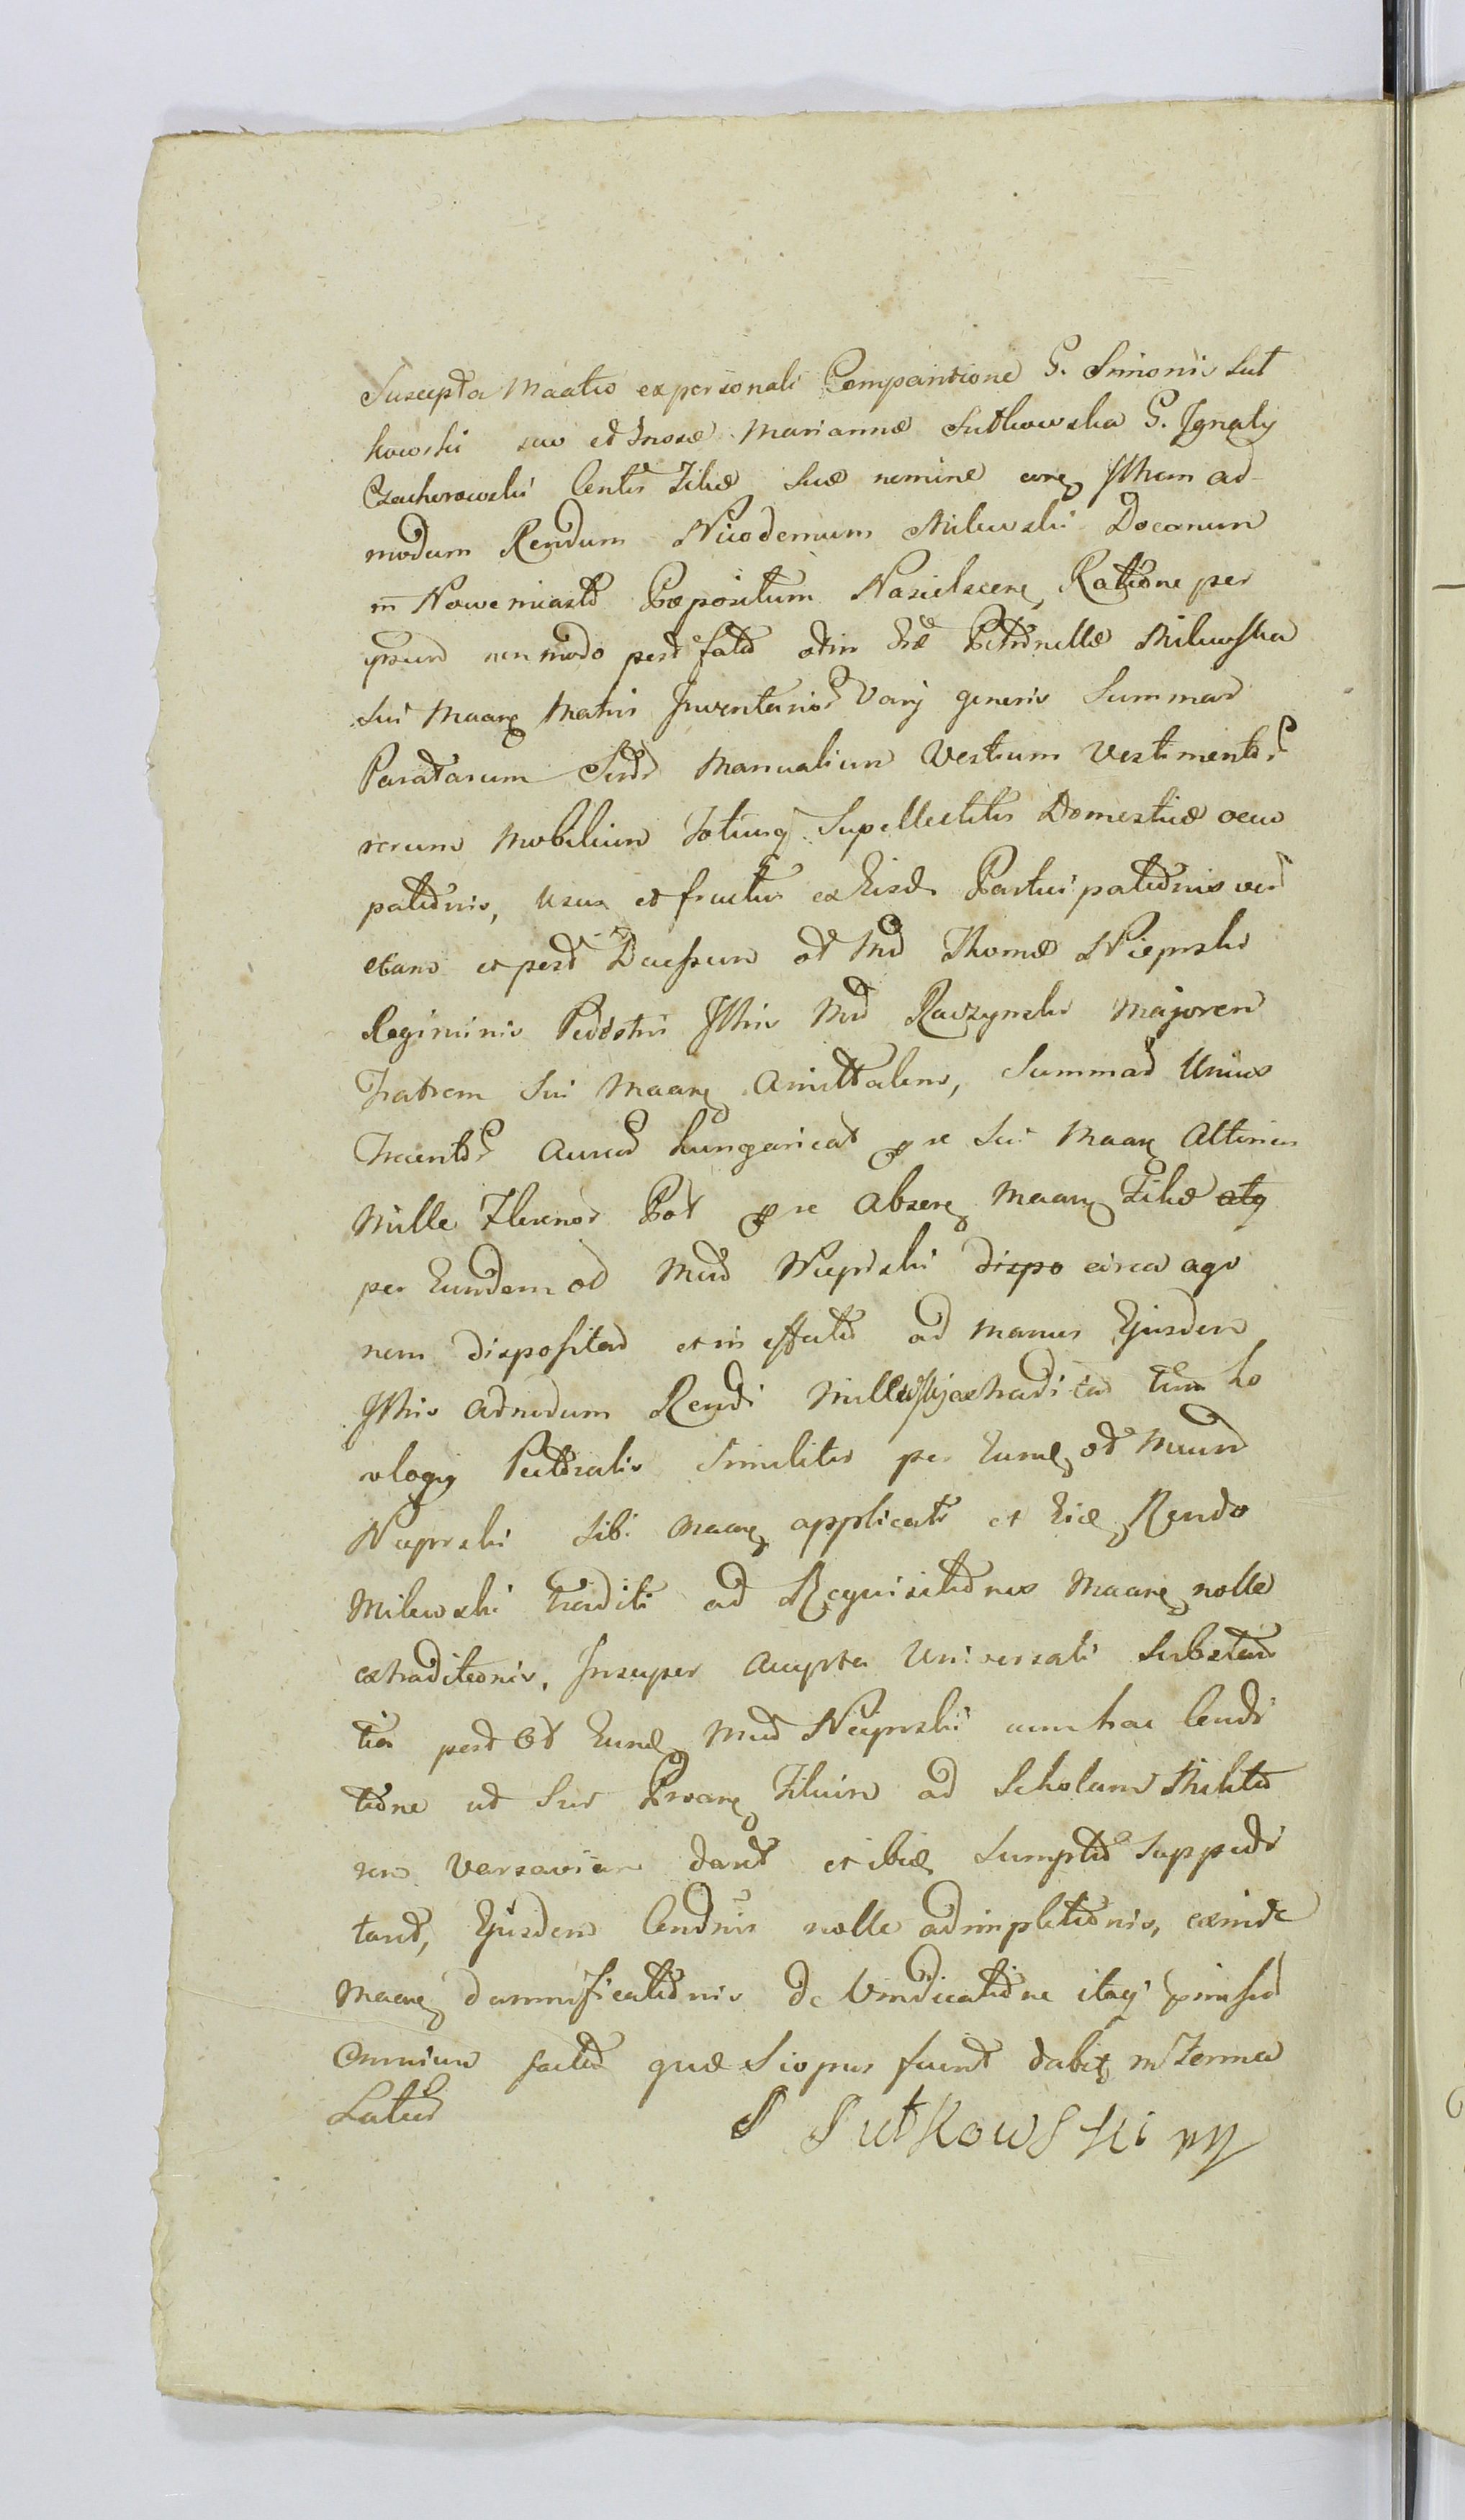 Suscepta Maatio ex personali Comparitione G. Simonis Sut
kowski suo et Gnosæ Mariannæ Sutkowska G. Ignaty
Czachorowski Contis Filiæ Suæ nomine Illum ad-
modum Rendum Nicodemum Milewski Decanum
in Nowemiasto Præpositum Nasielscen Ratione per
ipsum non modo post fata olim Petronellæ Milewska
Sui Maare Matris Inventarior Varij generis Summar
Paratarum Manualium Vestium Vestimentor
rerum Mobilium Totiusq Supellectilis Domesticæ occu
pationis, usus et fructus ex Eisd Participationis ver
etiam et post Decessum ol Md Thomæ Nieprski
Regiminis Pedestris Illris Md Raczynski Majorem
Fratrem Sui Maare Amittalem, Summar Unius
Trecentor Aureor hungarical pse Sui Maare Attinen
Mille Florenor Pol pse Absere Maare Filiæ atq
per Eundem ol Md Nieprski dispo circa ago
nem dispositar et in effectu ad manus Ejusdem
Illris admodum Rendi Millewskij extraditar tum ho
rologij Pectoralis Similiter per Eund ol Mcum
Nieprski Sibi Maare applicati et Eid Rendo
Milewski traditi ad Requisitionis Maare nolle
extraditionis, Insuper Accepta Universali Substan
tia post ol Eund Md Nieprski cum hac Condi
tione ut Sui Proare Filium ad Scholam Milita
rem Varsaviam daret et ibid Sumptus suppedi
taret, Ejusdem Condnis nolle adimpletionis, exinde
Maare damnificationis de Vindicatione itaq præmissor
Omnium factur quæ Si opus fuerit dabit in Termo
Latius
S Sutkowski mp